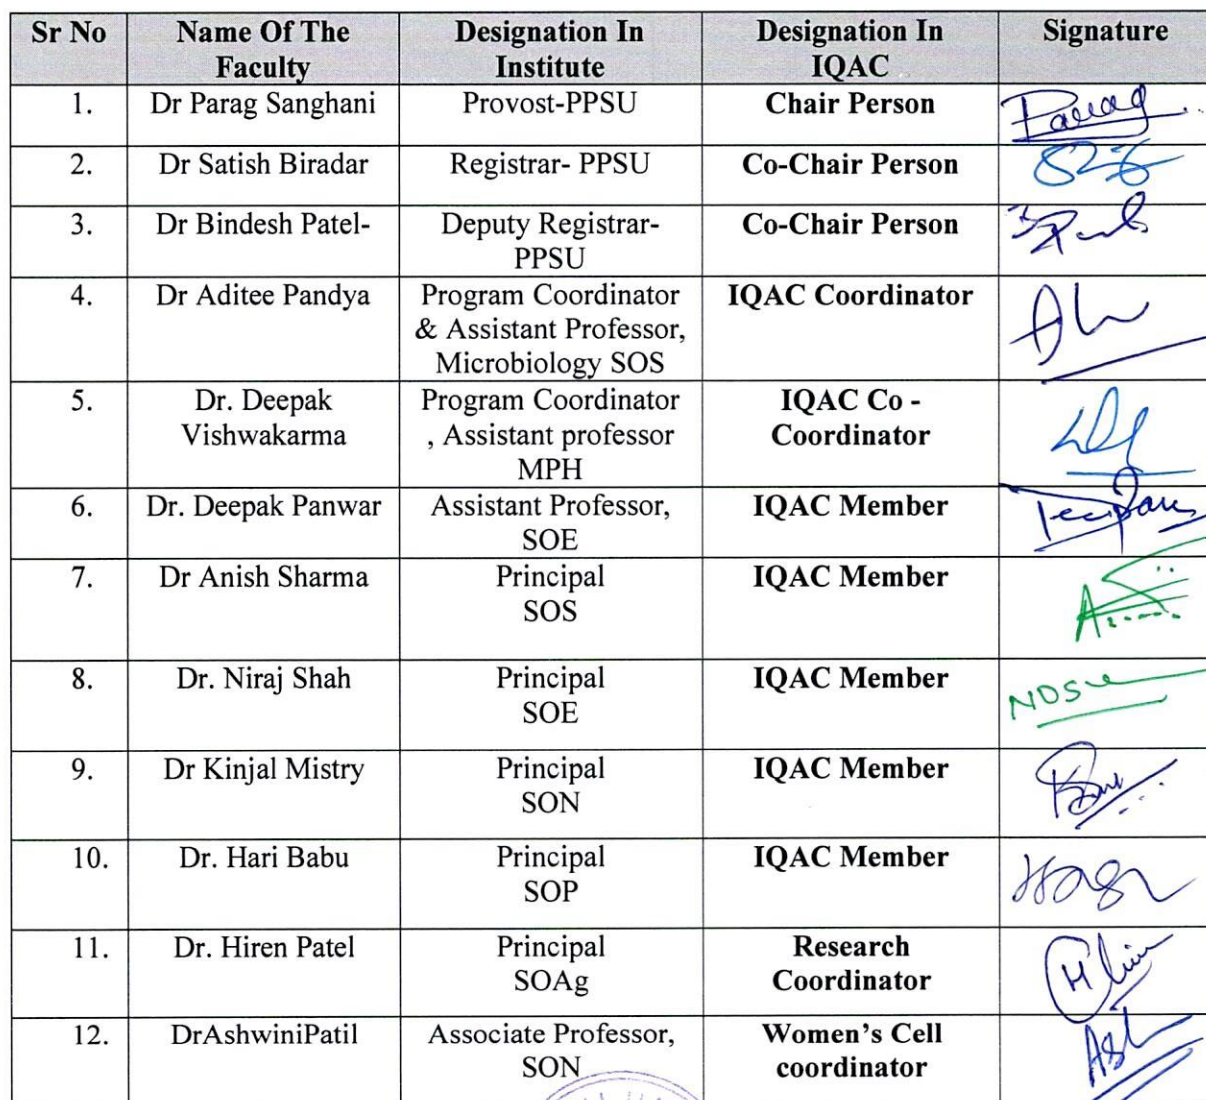 Sr No Name Of The Faculty Designation In Institute Designation In IQAC Signature
1. Dr Parag Sanghani Provost-PPSU Chair Person Parag
2. Dr Satish Biradar Registrar- PPSU Co-Chair Person
3. Dr Bindesh Patel- Deputy Registrar- PPSU Co-Chair Person
4. Dr Aditee Pandya Program Coordinator & Assistant Professor, Microbiology SOS IQAC Coordinator
5. Dr. Deepak Vishwakarma Program Coordinator , Assistant professor MPH IQAC Co - Coordinator
6. Dr. Deepak Panwar Assistant Professor, SOE IQAC Member
7. Dr Anish Sharma Principal SOS IQAC Member
8. Dr. Niraj Shah Principal SOE IQAC Member
9. Dr Kinjal Mistry Principal SON IQAC Member
10. Dr. Hari Babu Principal SOP IQAC Member
11. Dr. Hiren Patel Principal SOAg Research Coordinator
12. DrAshwiniPatil Associate Professor, SON Women's Cell coordinator